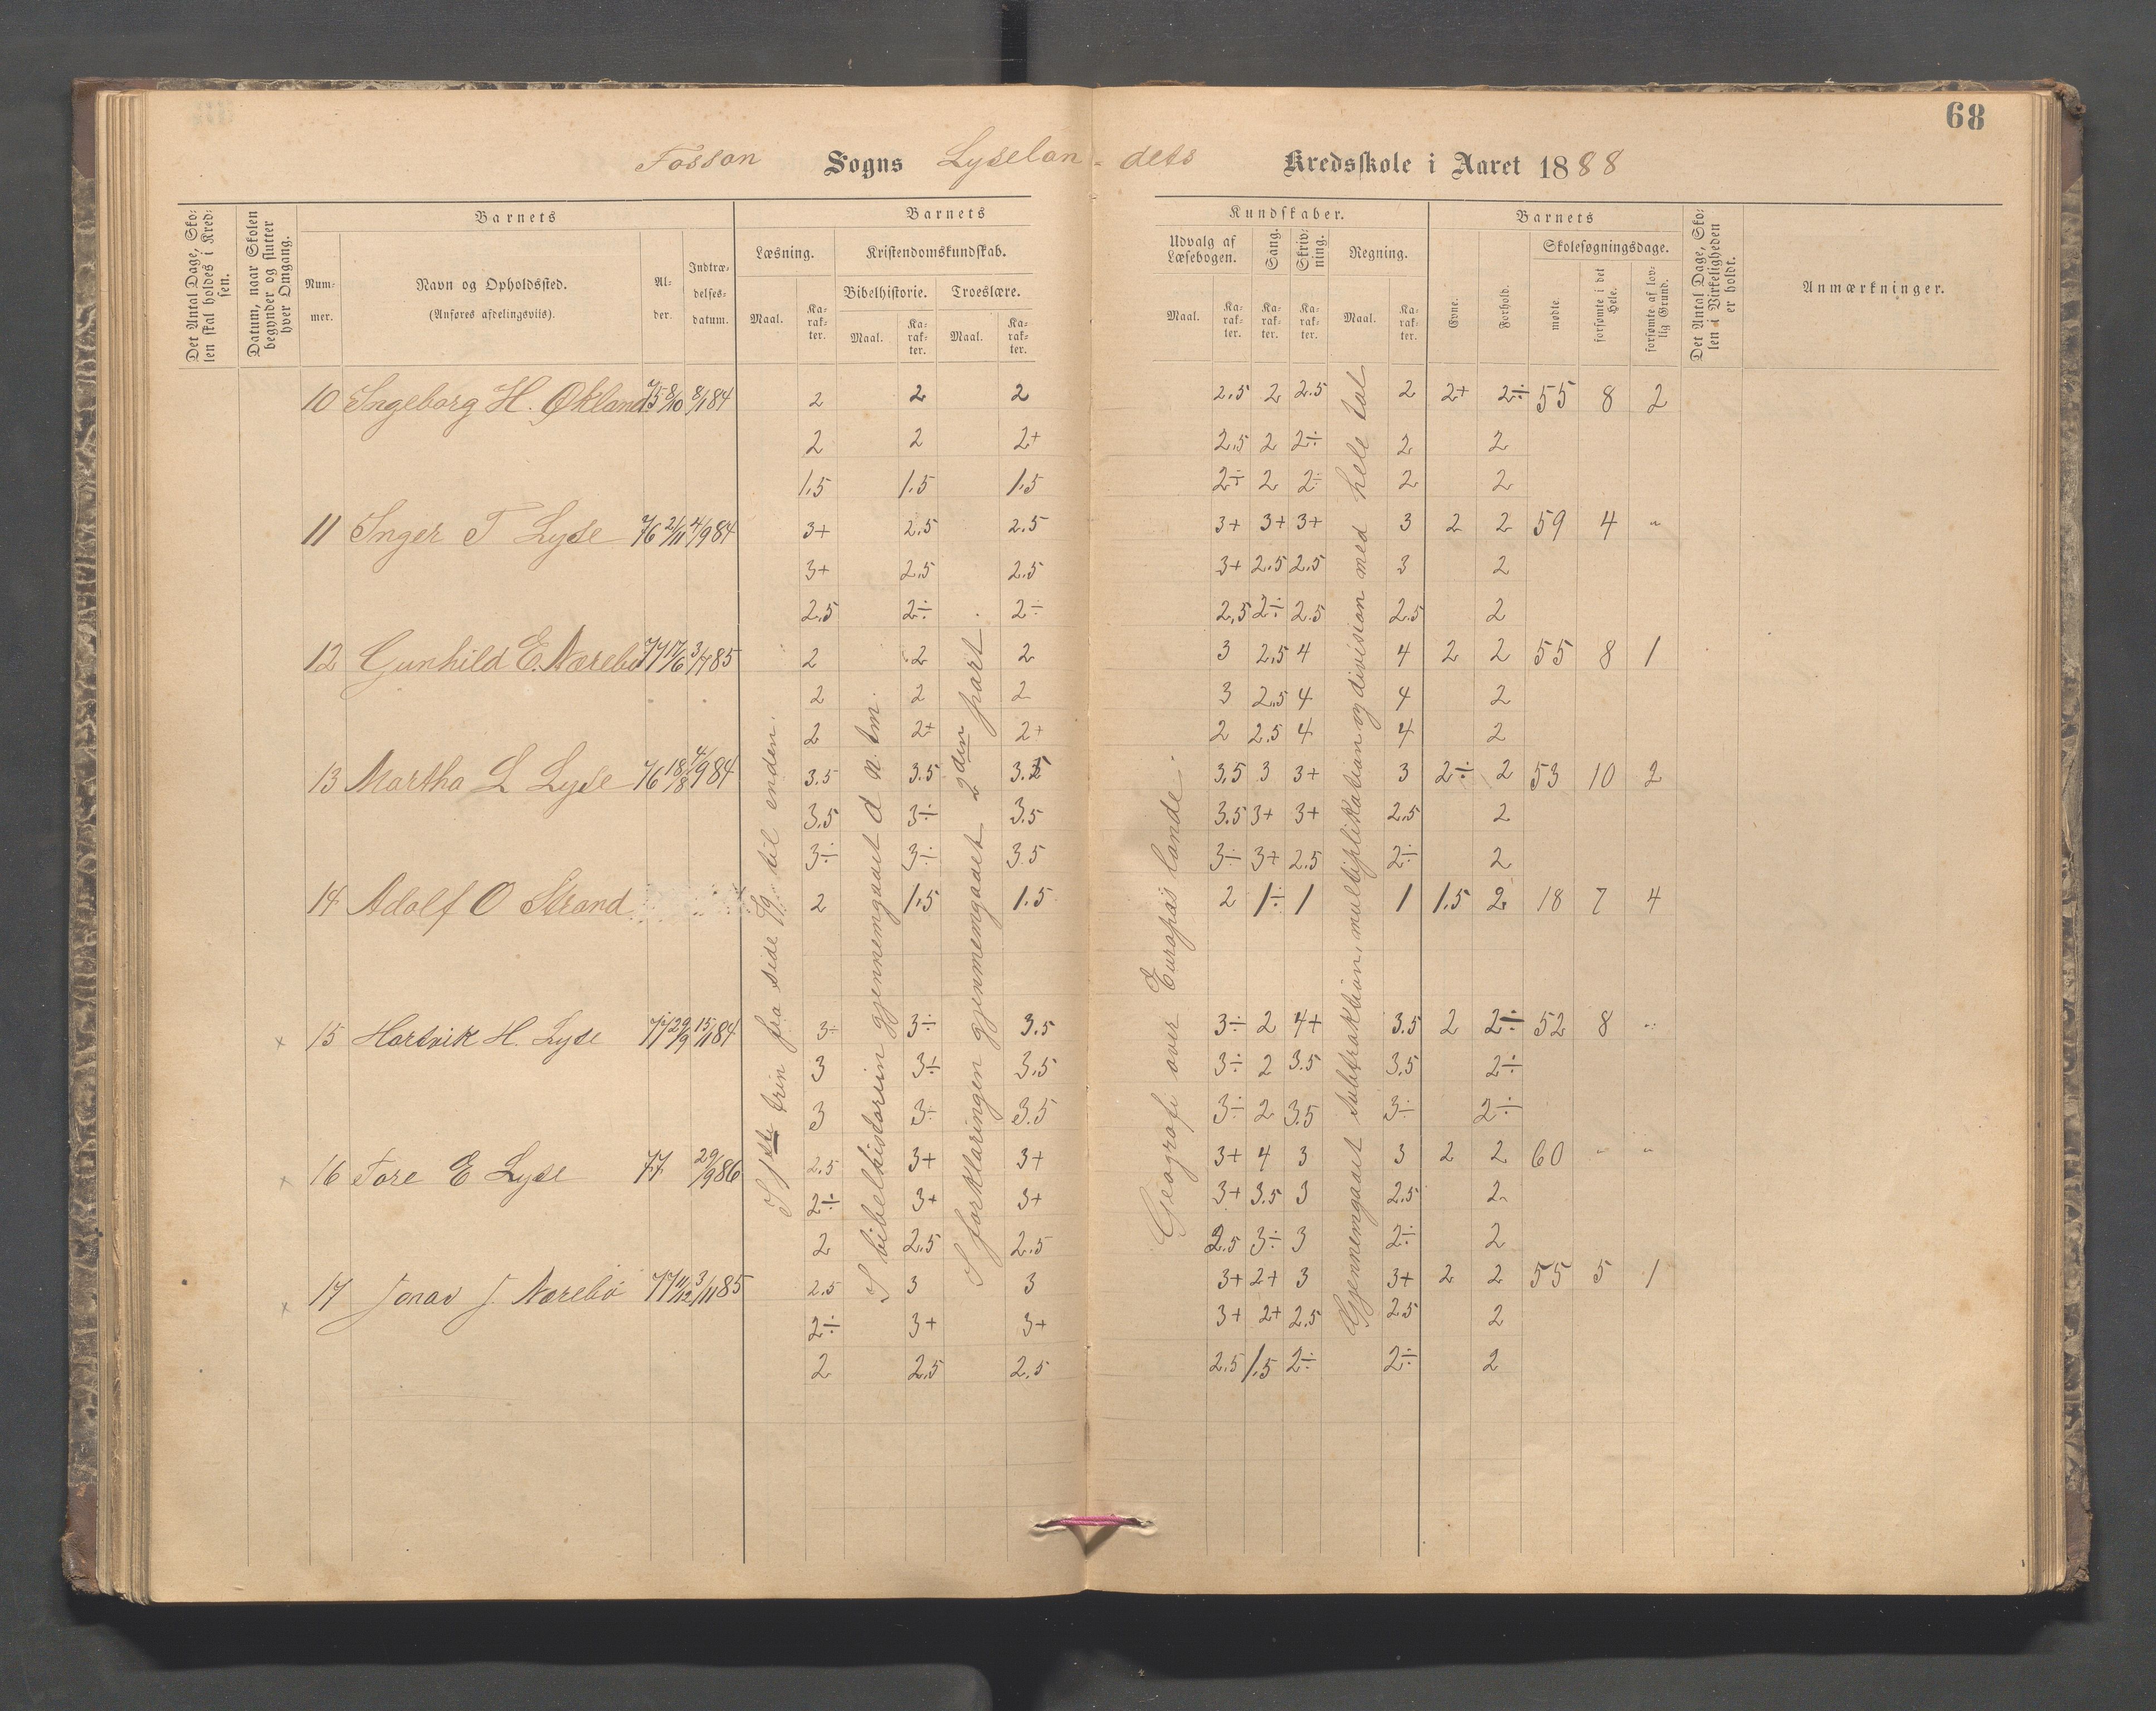 68
Fossan Sogns Lyselan-dets Kredsskole i Aaret 1888
Det Antal Dage, Skolen skal holdes i Kredsen.
Datum, naar Skolen begynder og slutter hver Omgang.
Barnets
Nummer.
Navn og Opholdssted.
(Anføres afdelingsviis).
Alder.
Indtrædelsesdatum.
Barnets Kundskaber.
Læsning.
Maal.
Karakter.
Kristendomskundskab.
Bibelhistorie.
Maal.
Karakter.
Troeslære.
Maal.
Karakter.
Udvalg af Læsebogen.
Maal.
Karakter.
Sang.
Karakter.
Skrivning.
Karakter.
Regning.
Maal.
Karakter.
Barnets
Evne.
Forhold.
Skolesøgningsdage.
mødte.
forsømte i det Hele.
forsømte af lovlig Grund.
Det Antal Dage, Skolen i Virkeligheden er holdt.
Anmærkninger.
10 Ingeborg H. Økland 75 8/10 8/1 84 2 2 2 2.5 2 2.5 2 2+ 2÷ 55 8 2
2 2 2+ 2.5 2 2÷ 2 2
1.5 1.5 1.5 2÷ 2 2÷ 2 2
11 Inger T Lyse 76 2/11 4/9 84 3+ 2.5 2.5 3+ 3+ 3+ 3 2 2 59 4 "
3+ 2.5 2.5 3+ 2.5 2.5 3 2
2.5 2÷ 2÷ 2.5 2÷ 2.5 2.5 2
12 Gunhild E. Nærebø 77 17/6 3/7 85 2 2 2 3 2.5 4 4 2 2 55 8 1
2 2 2 3 2.5 4 4 2
2 2+ 2+ 2 2.5 4 4 2
13 Martha L Lyse 76 18/8 4/9 84 3.5 3.5 3.5 3.5 3 3+ 3 2÷ 2 53 10 2
3.5 3÷ 3.5 3.5 3+ 3+ 2.5 2
3÷ 3÷ 3.5 3÷ 3+ 2.5 2÷ 2
14 Adolf O Strand 2 1.5 1.5 2 1÷ 1 1 1.5 2 18 7 4
x 15 Hartvik H. Lyse 77 29/9 15/1 84 3÷ 3÷ 3.5 3÷ 2 4+ 3.5 2 2÷ 52 8 "
3 3÷ 3.5 3÷ 2 3.5 3.5 2÷
3 3÷ 3.5 3÷ 2 3.5 3÷ 2÷
x 16 Tore E Lyse 77 29/9 86 2.5 3+ 3+ 3+ 4 3 3 2 2 60 " "
2÷ 3+ 3+ 3+ 3.5 3 2.5 2
2 2.5 2.5 2.5 3÷ 3 2÷ 2
x 17 Jonas J. Nærebø 77 11/12 3/11 85 2.5 3 3 3+ 2+ 3 3+ 2 2 55 5 1
2÷ 3+ 3+ 3+ 2+ 2.5 2.5 2
2 2.5 2.5 2.5 1.5 2÷ 2÷ 2
I 1ste trin fra side til enden.
I bibelhistorien gjennemgaaet d n. tm.
I forklaringen gjennemgaaet 2den part
Geografi over Europas lande.
Gjennemgaaet subtraktion, multiplikation og division med hele tal